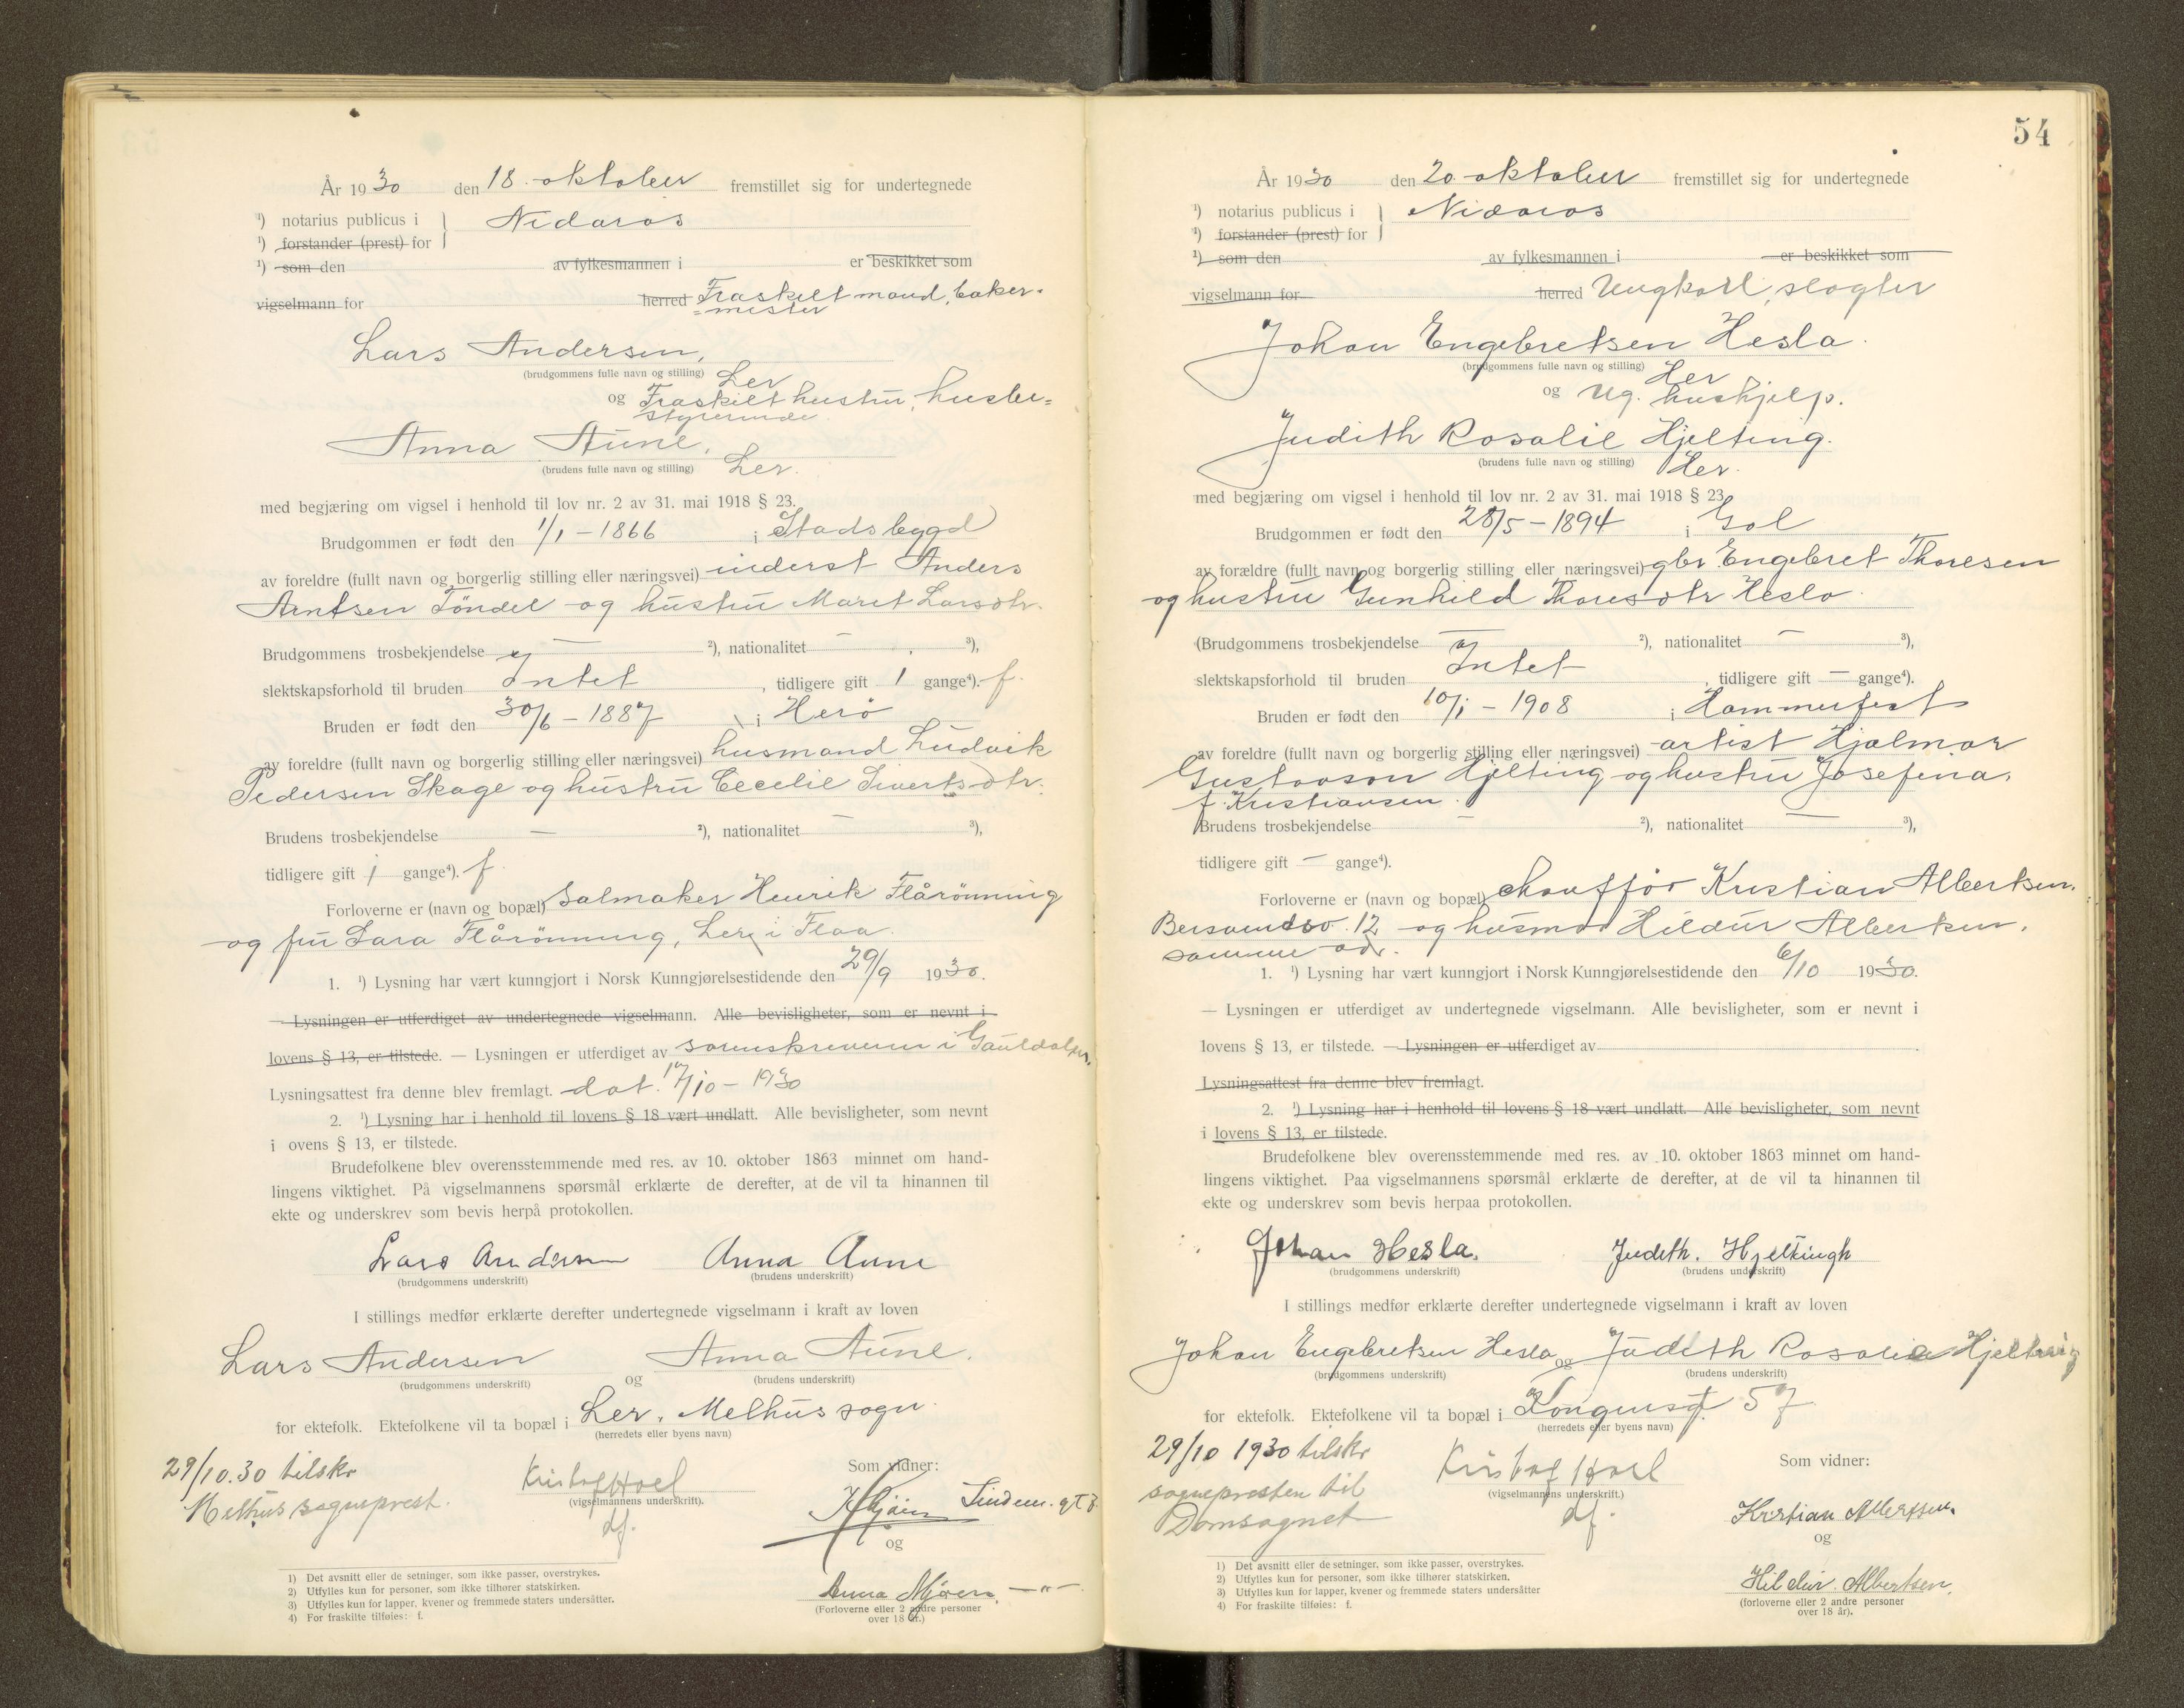 År 1930 den 18. oktober fremstillet sig for undertegnede
¹) notarius publicus i Nidaros
¹) forstander (prest) for
¹) som den av fylkesmannen i er beskikket som
vigselmann for herred Fraskilt mand, baker-
=mester
Lars Andersen,
(brudgommens fulle navn og stilling) Ler
og Fraskilt hustru, husbe=
styrerinde
Anna Aune,
(brudens fulle navn og stilling) Ler.
med begjæring om vigsel i henhold til lov nr. 2 av 31. mai 1918 § 23.
Brudgommen er født den 1/1 – 1866 i Stadsbygd
av foreldre (fullt navn og borgerlig stilling eller næringsvei) inderst Anders
Arntsen Töndel og hustru Maret Larsdtr.
Brudgommens trosbekjendelse — ²), nationalitet — ³),
slektskapsforhold til bruden Intet, tidligere gift 1 gange⁴). f.
Bruden er født den 30/6 – 1887 i Herö
av foreldre (fullt navn og borgerlig stilling eller næringsvei) husmand Ludvik
Pedersen Skage og hustru Cecelie Sivertsdtr.
Brudens trosbekjendelse — ²), nationalitet — ³),
tidligere gift 1 gange⁴). f.
Forloverne er (navn og bopæl) Salmaker Henrik Flårönning
og fru Sara Flårönning, Ler i Flaa.
1. ¹) Lysning har vært kunngjort i Norsk Kunngjørelsestidende den 29/9 1930.
— Lysningen er utferdiget av undertegnede vigselmann. Alle bevisligheter, som er nevnt i
lovens § 13, er tilstede. — Lysningen er utferdiget av sorenskriveren i Gauldalen.
Lysningsattest fra denne blev fremlagt. dat. 17/10 – 1930
2. ¹) Lysning har i henhold til lovens § 18 vært undlatt. Alle bevisligheter, som nevnt
i ovens § 13, er tilstede.
Brudefolkene blev overensstemmende med res. av 10. oktober 1863 minnet om hand-
lingens viktighet. På vigselmannens spørsmål erklærte de derefter, at de vil ta hinannen til
ekte og underskrev som bevis herpå protokollen.
Lars Andersen Anna Aune
(brudgommens underskrift) (brudens underskrift)
I stillings medfør erklærte derefter undertegnede vigselmann i kraft av loven
Lars Andersen og Anna Aune.
(brudgommens underskrift) (brudens underskrift)
for ektefolk. Ektefolkene vil ta bopæl i Ler, Melhus sogn.
(herredets eller byens navn)
29/10.30 tilskr
Melhus sogneprest.
Kristof Hoel
(vigselmannens underskrift).
df.
Som vidner:
og
Anna Mjøen —"—
(Forloverne eller 2 andre personer
over 18 år.)
1) Det avsnitt eller de setninger, som ikke passer, overstrykes.
2) Utfylles kun for personer, som ikke tilhører statskirken.
3) Utfylles kun for lapper, kvener og fremmede staters undersåtter.
4) For fraskilte tilføies: f.
54
År 1930 den 20 oktober fremstillet sig for undertegnede
¹) notarius publicus i Nidaros
¹) forstander (prest) for
¹) som den av fylkesmannen i er beskikket som
vigselmann for herred Ungkarl, slagter
Johan Engebretsen Hesla.
(brudgommens fulle navn og stilling) Her
og Ug. hushjelp.
Judith Rosalie Hjelting.
(brudens fulle navn og stilling) Her.
med begjæring om vigsel i henhold til lov nr. 2 av 31. mai 1918 § 23
Brudgommen er født den 28/5 – 1894 i Gol
av forældre (fullt navn og borgerlig stilling eller næringsvei) gbr Engebret Thoresen
og hustru Gunhild Thoresdtr Hesla.
(Brudgommens trosbekjendelse — ²), nationalitet — ³),
slektskapsforhold til bruden Intet, tidligere gift — gange⁴).
Bruden er født den 10/1 – 1908 i Hammerfest
av foreldre (fullt navn og borgerlig stilling eller næringsvei) artist Hjalmar
Gustavson Hjelting og hustru Josefina,
f. Kristiansen.
Brudens trosbekjendelse — ²), nationalitet — ³),
tidligere gift — gange⁴).
Forloverne er (navn og bopæl) chauffør Kristian Albertsen,
12 og husmor Hildur Albertsen,
samme adr.
1. ¹) Lysning har vært kunngjort i Norsk Kunngjørelsestidende den 6/10 1930.
— Lysningen er utferdiget av undertegnede vigselmann. Alle bevisligheter, som er nevnt i
lovens § 13, er tilstede. — Lysningen er utferdiget av .
Lysningsattest fra denne blev fremlagt.
2. ¹) Lysning har i henhold til lovens § 18 vært undlatt. Alle bevisligheter, som nevnt
i lovens § 13, er tilstede.
Brudefolkene blev overensstemmende med res. av 10. oktober 1863 minnet om hand-
lingens viktighet. Paa vigselmannens spørsmål erklærte de derefter, at de vil ta hinannen til
ekte og underskrev som bevis herpaa protokollen.
Johan Hesla. Judith. Hjeltingh
(brudgommens underskrift) (brudens underskrift)
I stillings medfør erklærte derefter undertegnede vigselmann i kraft av loven
Johan Engebretsen Hesla og Judith Rosalie Hjelting
(brudgommens underskrift) (brudens underskrift)
for ektefolk. Ektefolkene vil ta bopæl i Kongensgt. 57
(herredets eller byens navn)
29/10 1930 tilskr
sognepresten til
Domsognet
Kristof Hoel
(vigselmannens underskrift.)
df.
Som vidner:
Kristian Albertsen.
og
Hildur. Albertsen.
(forloverne eller 2 andre personer
over 18 år).
1) Det avsnitt eller de setninger, som ikke passer, overstrykes.
2) Utfylles kun for personer, som ikke tilhører statskirken.
3) Utfylles kun for lapper, kvener og fremmede staters undersåtter
4) For fraskilte tilføies: f.